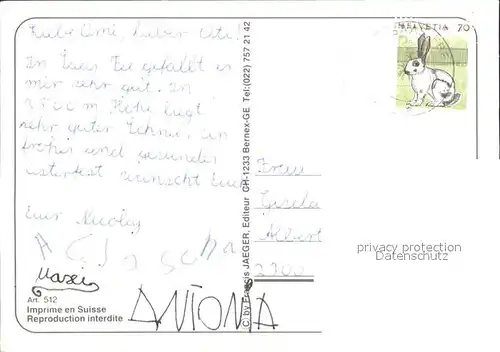 Liebe Omi, Lieber Ute!
In Saas Fee gefällt es
mir sehr gut. In
3500 m Höhe liegt
sehr guter Schnee. Ein
frohes und gesundes
Osterfest wünscht Euch
Euer Nicolas
Maxi
ANTONIA
Art. 512
Imprime en Suisse
Reproduction interdite
(C) by Francis JAEGER, Editeur CH-1233 Bernex-GE Tel:(022) 757 21 42
HELVETIA 70
Frau
Gisela
Albert
2300
privacy protection
Datenschutz